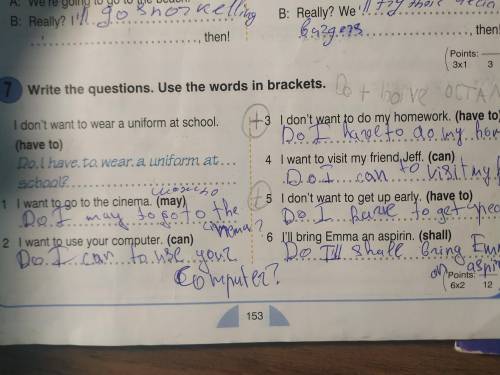 A: We're going to go to the beach.
B: Really? I 'll go snorkelling
, then!
B: Really? We 'll try
burgers, then!
Points:
3x1 3
7 Write the questions. Use the words in brackets.
I don't want to wear a uniform at school.
(have to)
Do I have to wear a uniform at
school?
1 I want to go to the cinema. (may)
Do I may to go to the
cinema?
2 I want to use your computer. (can)
Do I can to use your
Computer?
+ 3 I don't want to do my homework. (have to)
Do I have to do my
4 I want to visit my friend, Jeff. (can)
Do I can to visit my
5 I don't want to get up early. (have to)
Do I have to get up
6 I'll bring Emma an aspirin. (shall)
Do I'll shall bring
Points:
6x2 12
153